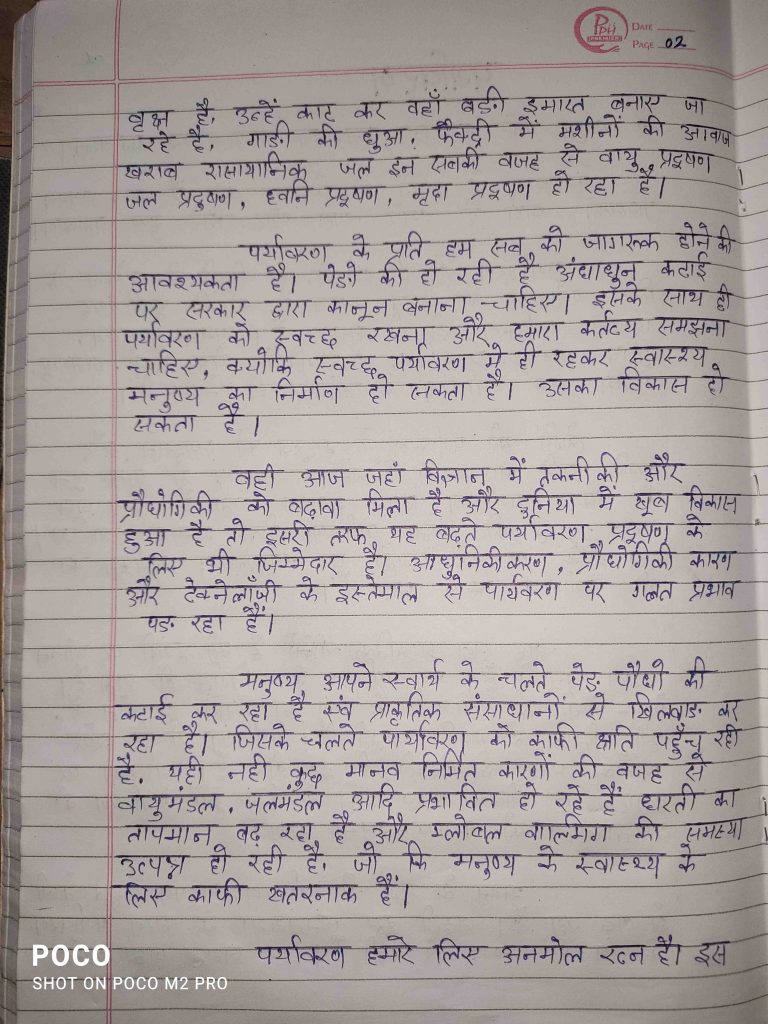 PDLI
DATE
PAGE 02
वृक्ष है, उन्हें काट कर वहाँ बडी इमारत बनाए जा
रहे है, गाडी की धुआ, फैक्ट्री में मशीनों की आवाज
खराब रासायानिक जल इन सबकी वजह से वायु प्रदूषण
जल प्रदुषण, ध्वनि प्रदूषण, मृदा प्रदूषण हो रहा है।
पर्यावरण के प्रति हम सब को जागरुक होने की
आवश्यकता है। पेडो की हो रही है अंधाधुन कटाई
पर सरकार द्वारा कानून बनाना चाहिए। इसके साथ ही
पर्यावरण को स्वच्छ रखना और हमारा कर्तव्य समझना
चाहिए, क्योकि स्वच्छ पर्यावरण मे ही रहकर स्वास्थ्य
मनुष्य का निर्माण हो सकता है। उसका विकास हो
सकता है।
वही आज जहां विज्ञान में तकनीकी और
प्रौधोगिकी को बढ़ावा मिला है और दुनिया में खूब विकास
हुआ है तो दूसरी तरफ यह बढ़ते पर्यावरण प्रदूषण के
लिए भी जिम्मेदार है। आधुनिकीकरण, प्रौधोगिकी कारण
और टेक्नेलॉजी के इस्तेमाल से पार्यवरण पर गलत प्रभाव
पड रहा है।
मनुष्य आपने स्वार्थ के चलते पेड पौधो की
कटाई कर रहा है एंव प्राकृतिक संसाधानों से खिलवाड कर
रहा है। जिसके चलते पार्यावरण को काफी क्षति पहुँच रही
है, यही नही कुछ मानव निर्मित कारणों की वजह से
वायुमंडल, जलमंडल आदि प्रभावित हो रहे हैं धरती का
तापमान बढ़ रहा है और ग्लोबल वार्लमिग की समस्या
उत्पन्न हो रही है, जो कि मनुष्य के स्वास्थ्य के
लिए काफी खतरनाक है।
पर्यावरण हमारे लिए अनमोल रत्न है। इस
POCO
SHOT ON POCO M2 PRO